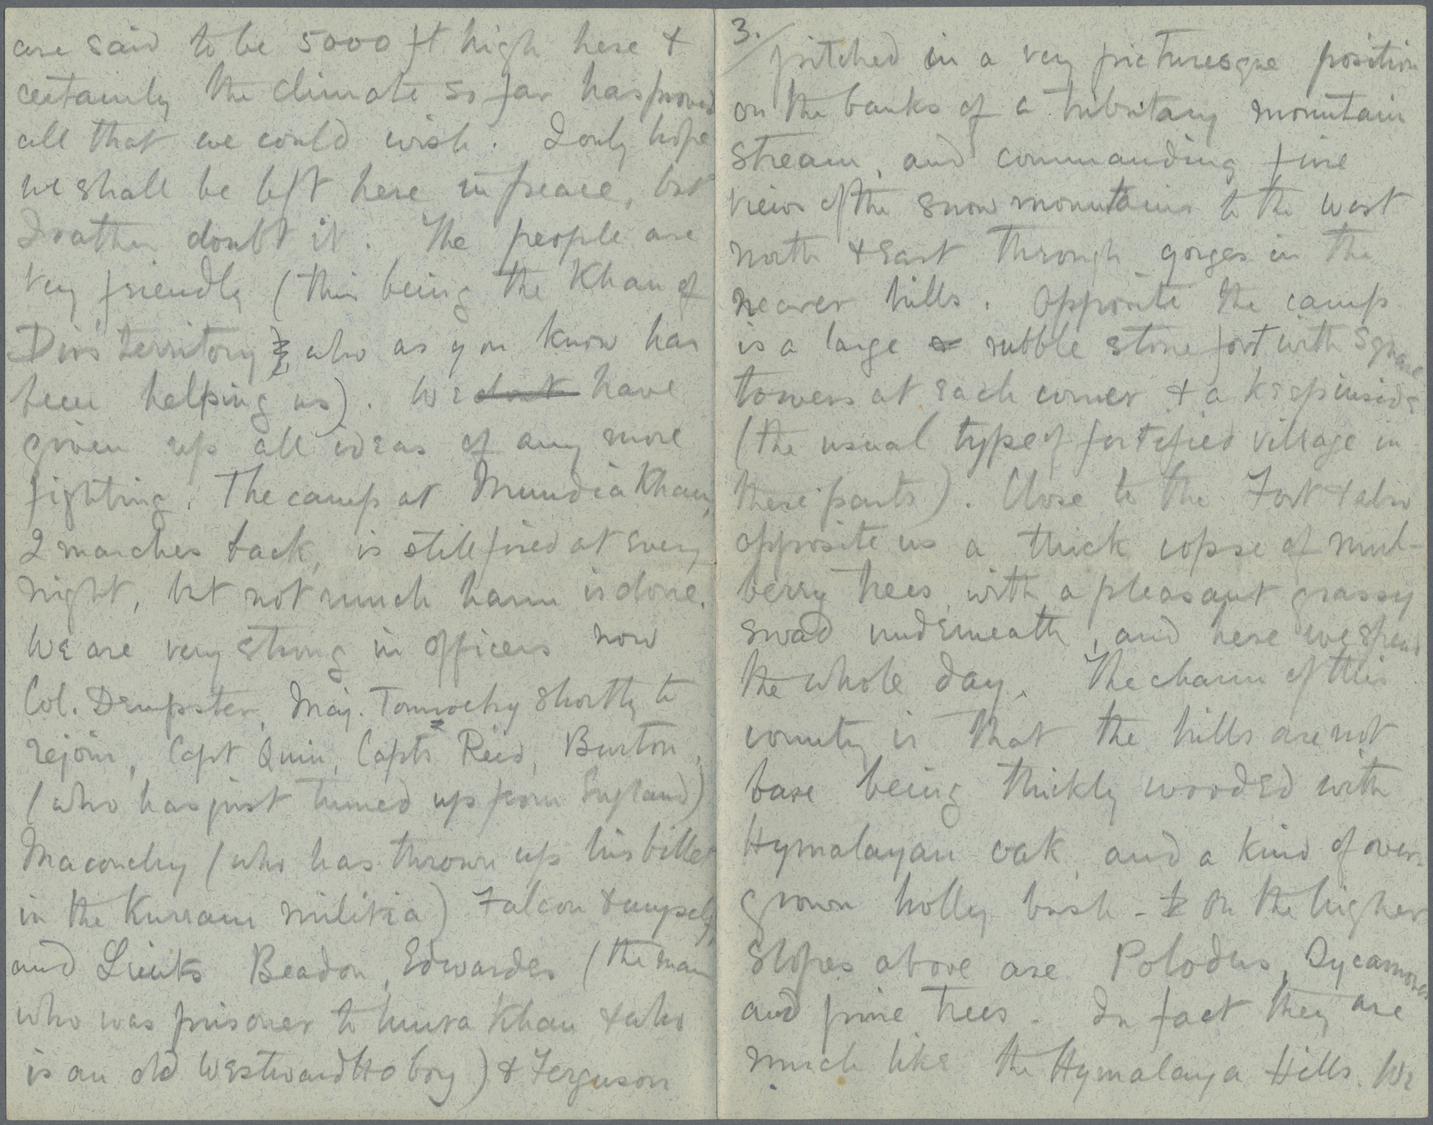 are said to be 5000 ft high here &
certainly the climate so far has proved
all that we could wish. I only hope
we shall be left here in peace, but
I rather doubt it. The people are
very friendly (this being the Khan of
Dir's territory & who as you know has
been helping us). We dont have
given up all ideas of any more
fighting. The camp at Mundia Khan,
2 marches back, is still fired at every
night, but not much harm is done.
We are very strong in officers now
Col. Dempster, Maj. Tonnochy shortly to
rejoin, Capt Quin, Capts Reid, Burton,
(who has just turned up from England)
Maconchy (who has thrown up his billet
in the Kurram militia) Falcon & myself,
and Lieuts Beadon, Edwardes (the man
who was prisoner to Umra Khan & who
is an old Westward Ho boy) & Ferguson
3.
pitched in a very picturesque position
on the banks of a tributary mountain
stream, and commanding fine
views of the snow mountains to the west
north & east through gorges in the
nearer hills. Opposite the camp
is a large rubble stone fort with square
towers at each corner & a keep inside
(the usual type of fortified village in
these parts). Close to the Fort & also
opposite us a thick copse of mul-
berry trees, with a pleasant grassy
swad underneath, and here we spend
the whole day. The charm of this
country is that the hills are not
bare being thickly wooded with
Hymalayan oak, and a kind of over-
grown holly bush - On the higher
slopes above are Polodus, Sycamores
and pine trees. In fact they are
much like the Hymalaya Hills. We